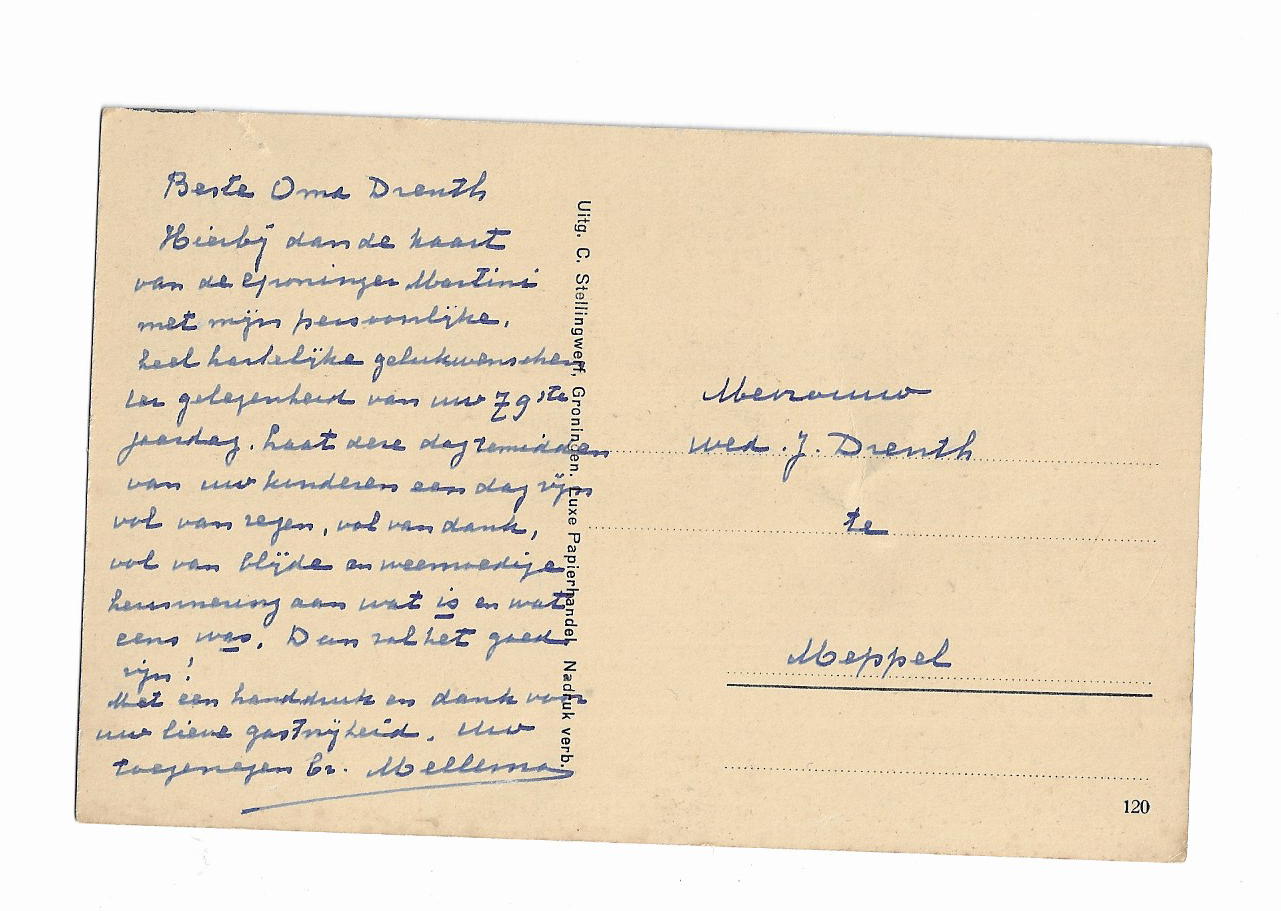 Beste Oma Drenth
Hierbij dan de kaart
van de Groninger Martini
met mijn persoonlijke,
heel hartelijke gelukwenschen
ter gelegenheid van uw 79ste
jaardag. Laat deze dag temidden
van uw kinderen een dag zijn
vol van zegen, vol van dank,
vol van blijde en weemoedige
herinnering aan wat is en wat
eens was. Dan zal het goed
zijn!
Met een handdruk en dank voor
uw lieve gastvrijheid. Uw
toegenegen br. Mellema
Uitg. C. Stellingwerf, Groningen. Luxe Papierhandel. Nadruk verb.
Mevrouw
Wed. J. Drenth
te
Meppel
120